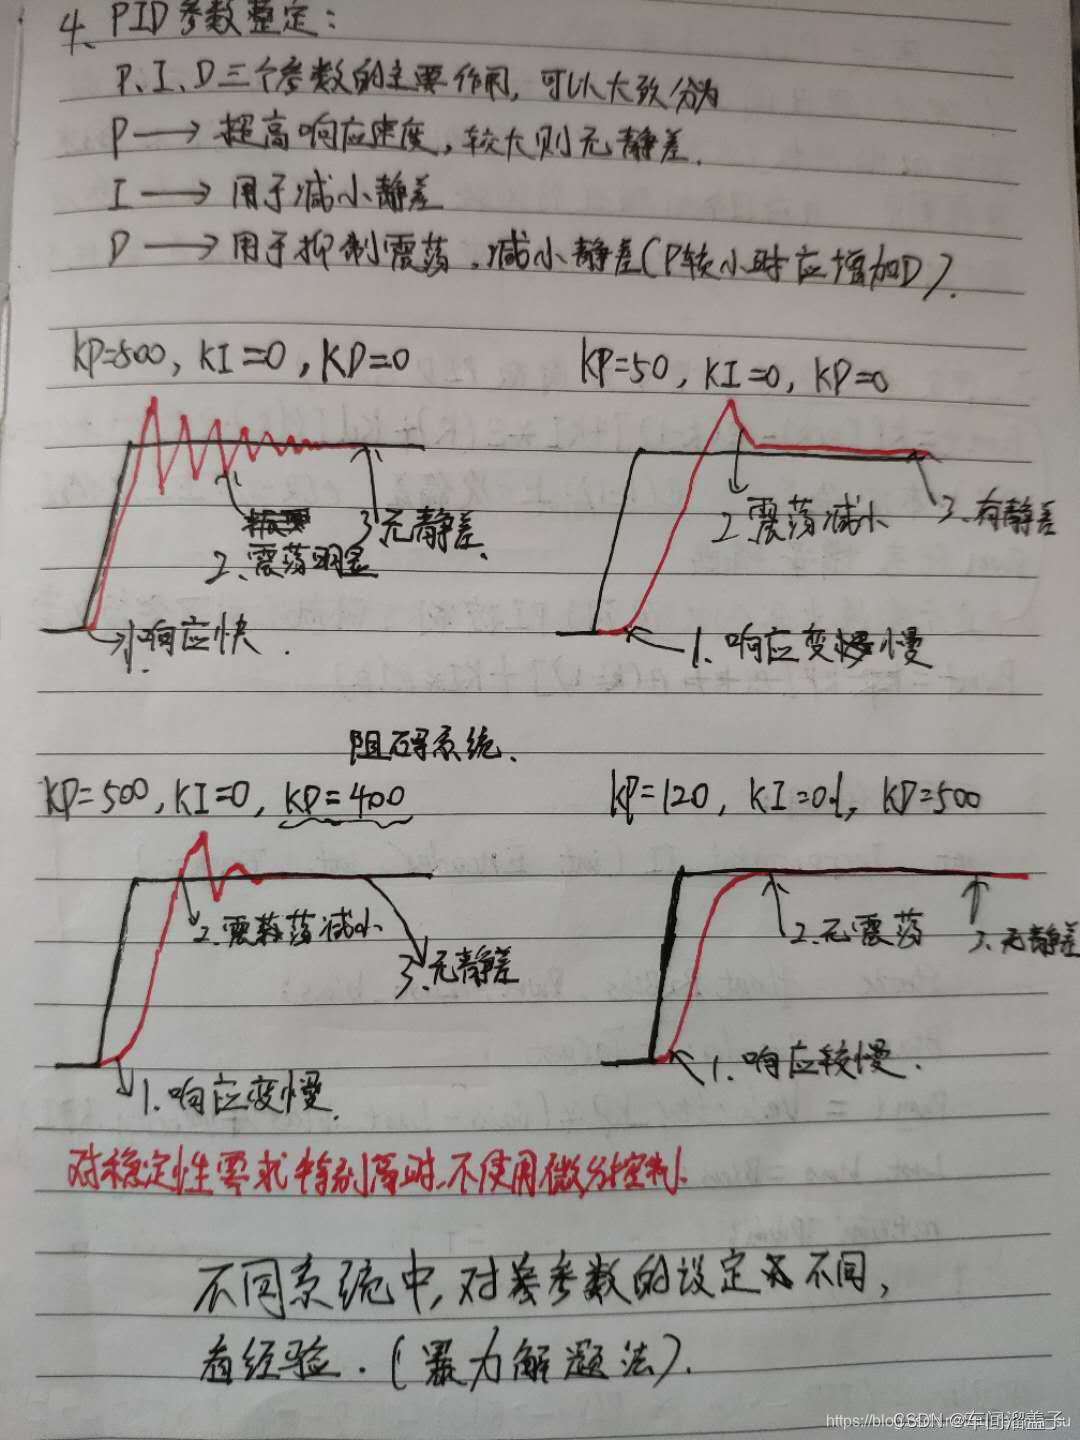 4、PID参数整定：
P、I、D三个参数的主要作用，可以大致分为
P → 提高响应速度，较大则无静差．
I → 用于减小静差
D → 用于抑制震荡．减小静差（P较小时应增加D）．
KP=500，KI=0，KD=0
KP=50，KI=0，KD=0
2、震荡明显
3、无静差．
1、响应快．
2、震荡减小
3、有静差
1、响应变慢
阻碍系统．
KP=500，KI=0，KD=400
KP=120，KI=0.1，KD=500
2、震荡减小
3、无静差
1、响应变慢．
2、无震荡
3、无静差
1、响应较慢．
对稳定性要求特别高时，不使用微分控制．
不同系统中，对参数的设定不同，
看经验．（暴力解题法）．
CSDN @车间溜盖子